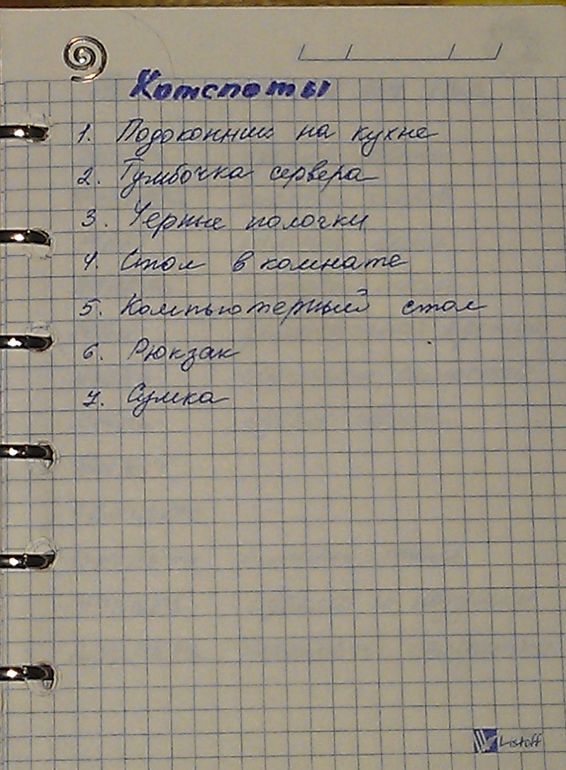 Хотспоты
1. Подоконник на кухне
2. Тумбочка сервера
3. Черные полочки
4. Стол в комнате
5. Компьютерный стол
6. Рюкзак
7. Сумка
Listoff